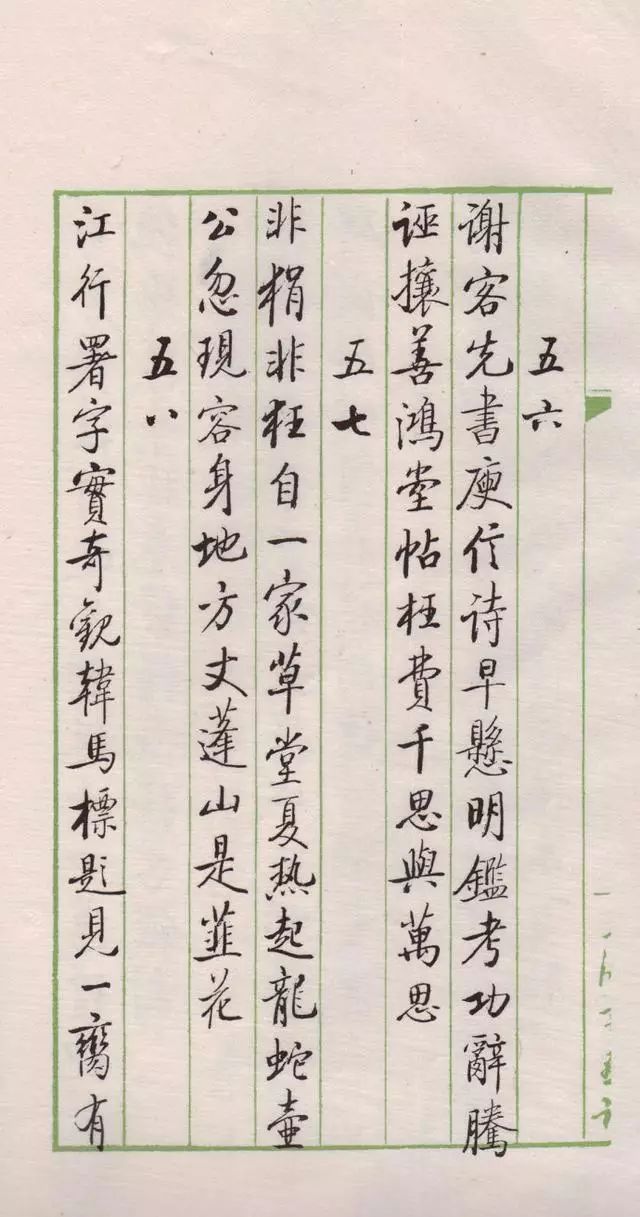 五六
谢客先書庾信诗早懸明鑑考功辭騰
誣攘善鴻堂帖枉費千思與萬思
五七
非楫非枉自一家草堂夏热起龍蛇壷
公忽現容身地方丈蓬山是韮花
五八
江行署字實奇觀韓馬標題見一臠有